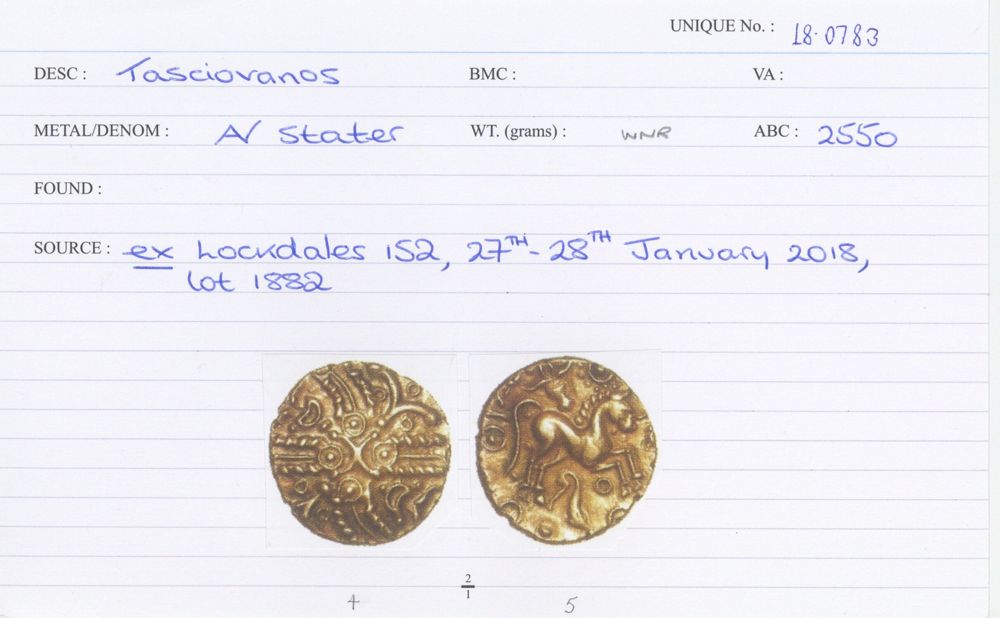 UNIQUE No. : 18.0783
DESC : Tasciovanos BMC : VA :
METAL/DENOM : AV Stater WT. (grams) : WNR ABC : 2550
FOUND :
SOURCE : ex Lockdales 152, 27TH - 28TH January 2018,
lot 1882
2/1
4 5